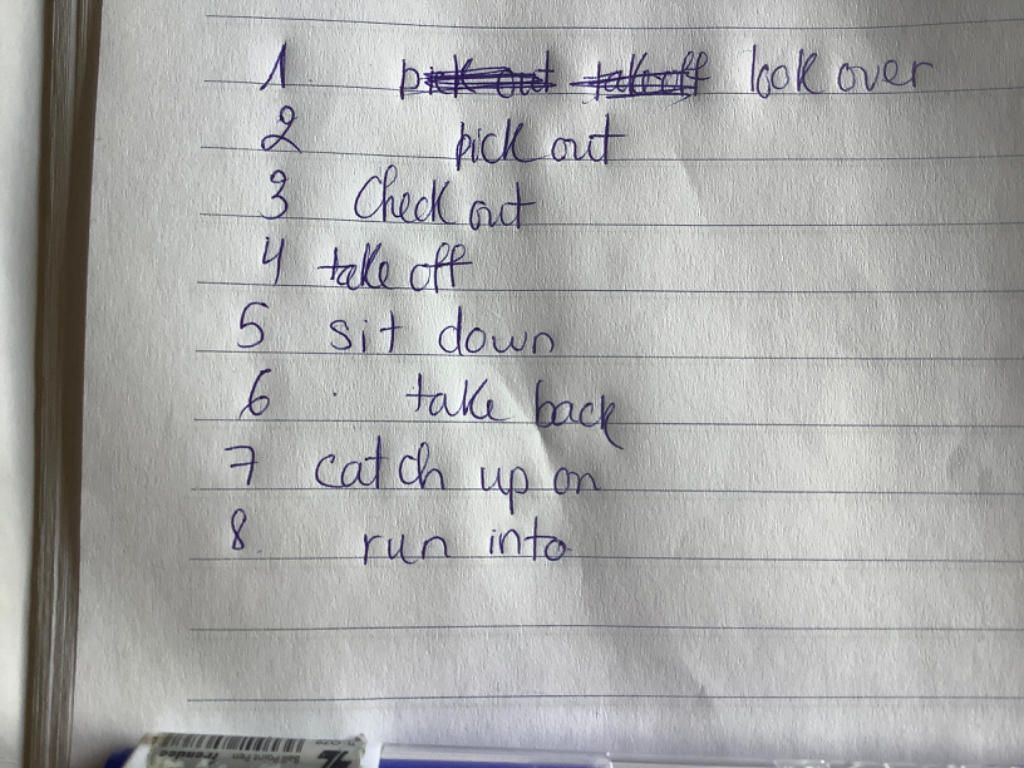 1 pick out take off look over
2 pick out
3 Check out
4 take off
5 sit down
6 take back
7 catch up on
8. run into
Ball Point Pen trendee